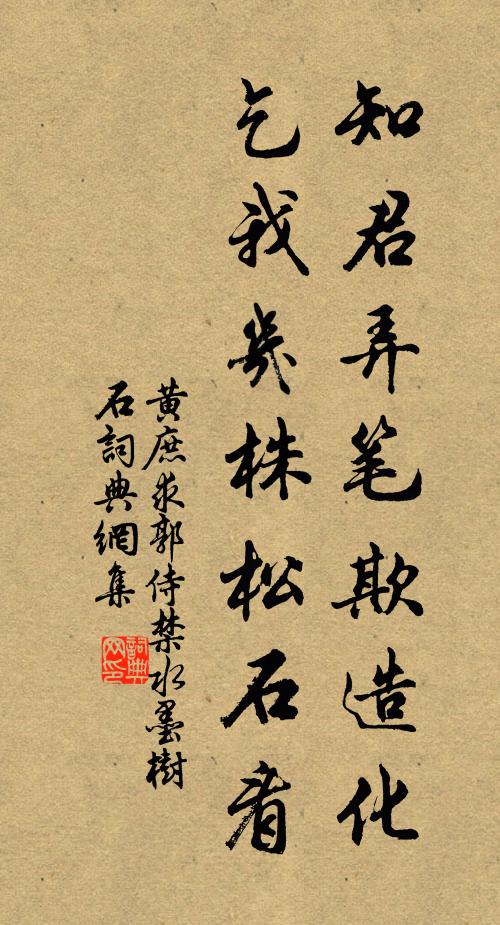 知君弄笔欺造化
乞我几株松石看
黄庶求郭侍禁水墨樹
石詞典網集
詞典网印